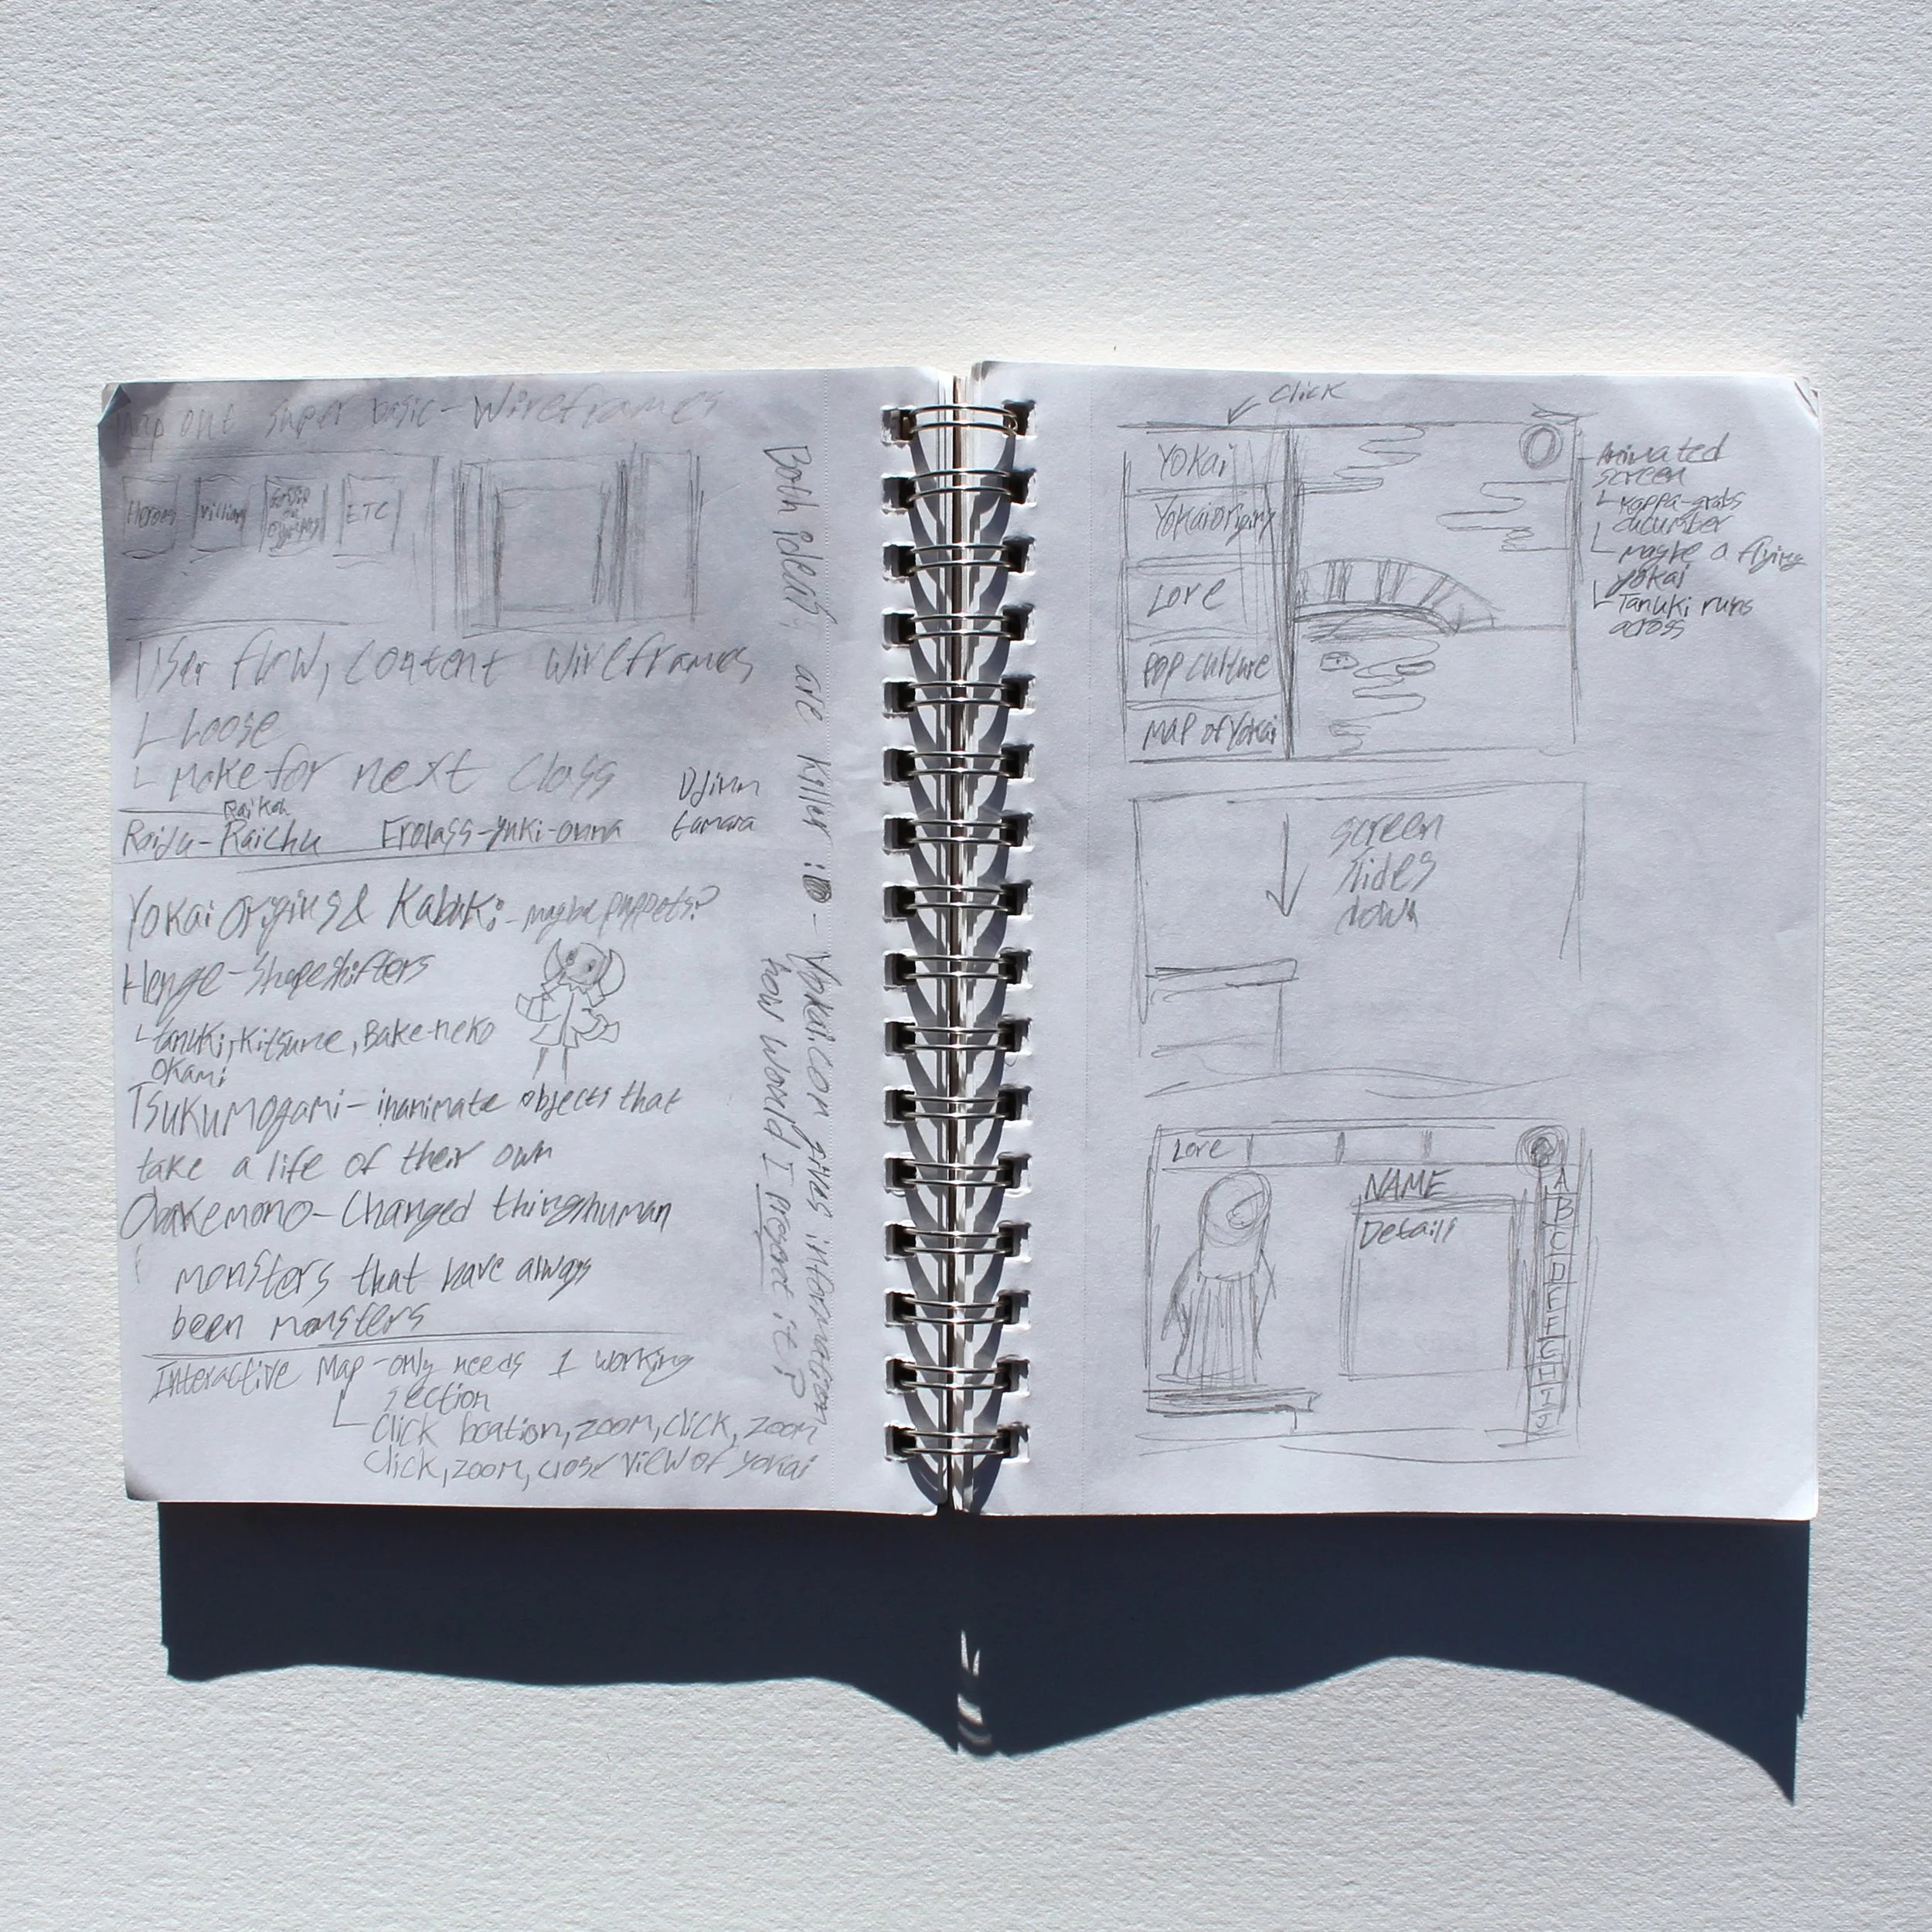 Map out super basic - Wireframes
Heroes
Villians
ETC
User flow, content wireframes
Loose
Make for next class
Raikou
Raiju - Raichu Frolass - yuki-onna
Djinn
Yokai origins & Kabuki - maybe puppets?
Henge - Shapeshifters
tanuki, Kitsune, Bake-neko
Okami
Tsukumogami - inanimate objects that
take a life of their own
Obakemono - Changed things/human
monsters that have always
been monsters
Interactive Map - only needs 1 working
section
Click location, zoom, click, zoom
click, zoom, close view of yokai
Both ideas are killer :D - Yokai.com gives information
how would I present it?
Click
Yokai
Yokai origins
Lore
Pop culture
Map of Yokai
Animated
screen
Kappa-grabs
cucumber
maybe a flying
yokai
Tanuki runs
across
screen
slides
down
Lore
NAME
Details
A
B
C
D
E
F
G
H
I
J